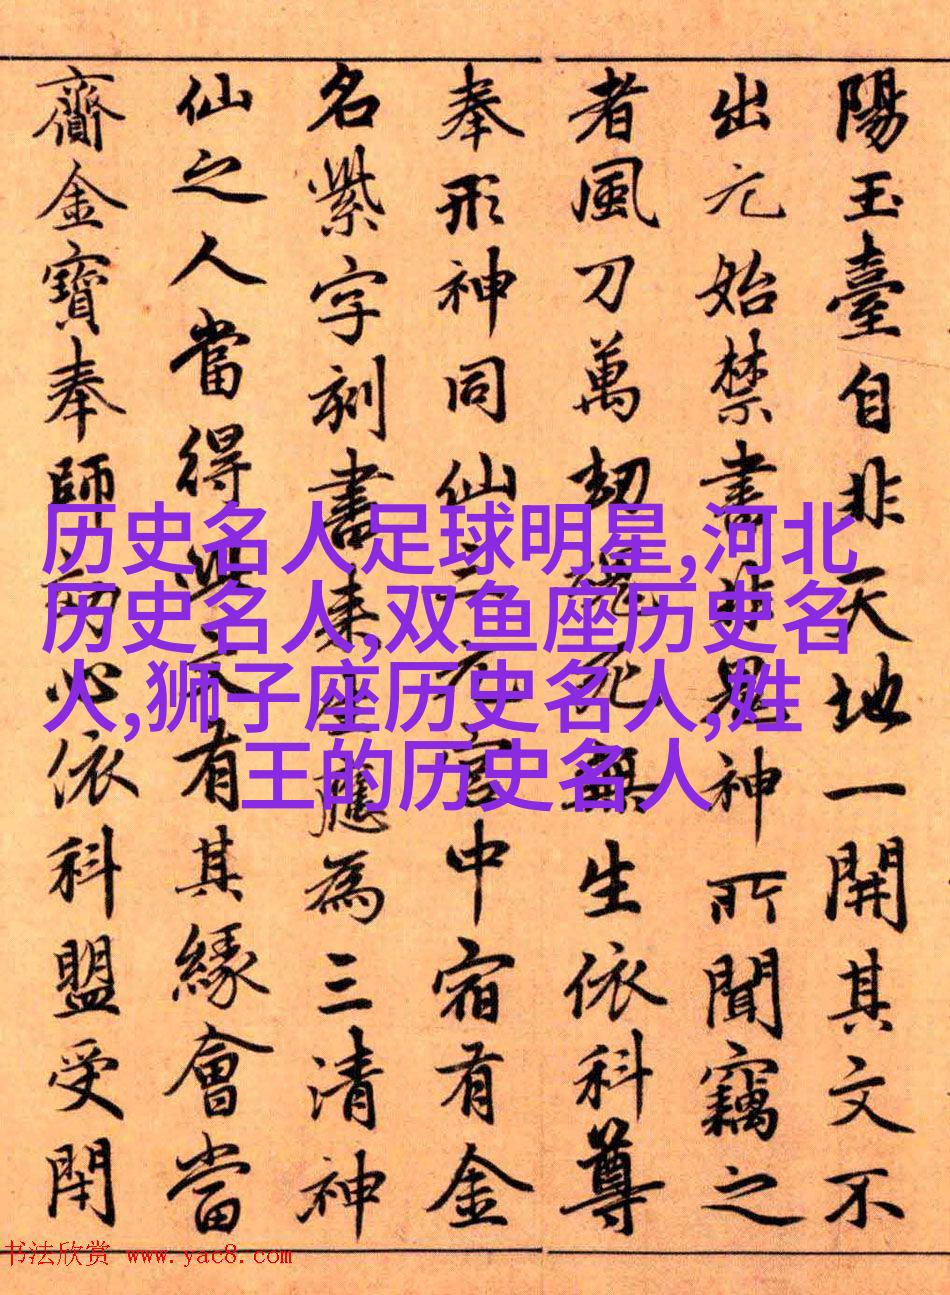 陽玉臺自非天地一開其文不
出元始禁書非鬼神所聞竊之
者風刀萬劫魂死無生依科尊
奉形神同仙三元宮中宿有金
名紫字刻書來生應為三清神
仙之人當得此文有其緣會當
齎金寶奉師効心依科盟受閇
历史名人足球明星,河北
历史名人,双鱼座历史名
人,狮子座历史名人,姓
王的历史名人
书法欣赏 www.yac8.com